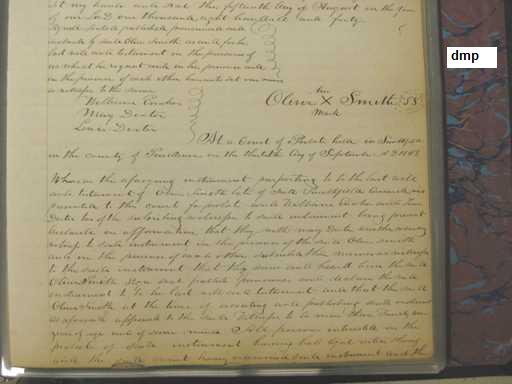 set my hand and seal the fifteenth day of August in the year
of our Lord one thousand eight hundred and forty
signed sealed published pronounced and
declared by said Olive Smith as and for her
last will and testament in the presence of
us who at her request and in her presence and
in the presence of each other have set our names
as witnesses to the same
William
Mary Dexter
Lewis Dexter
her
Olive X Smith
mark
dmp
At a Court of Probate held in Smithfield
in the County of Providence on the day of September AD 18
Whereas the aforesaid instrument purporting to be the last will
and testament of Olive Smith late of said Smithfield was
presented to this court for probate and William with
Dexter two of the subscribing witnesses to said instrument being present
declared on affirmation that they with Mary Dexter another
witness to said instrument in the presence of the said Olive Smith
and in the presence of each other subscribed their names as witnesses
to the said instrument that they saw and heard the said
Olive Smith sign seal publish pronounce and declare the said
instrument to be her last will and testament and that the said
Olive Smith at the time of executing and publishing said instrument
as aforesaid appeared to the said witnesses to be more than twenty one
years of age and of sound mind & All persons interested in the
probate of said instrument having had legal notice
and the court having examined said instrument and the